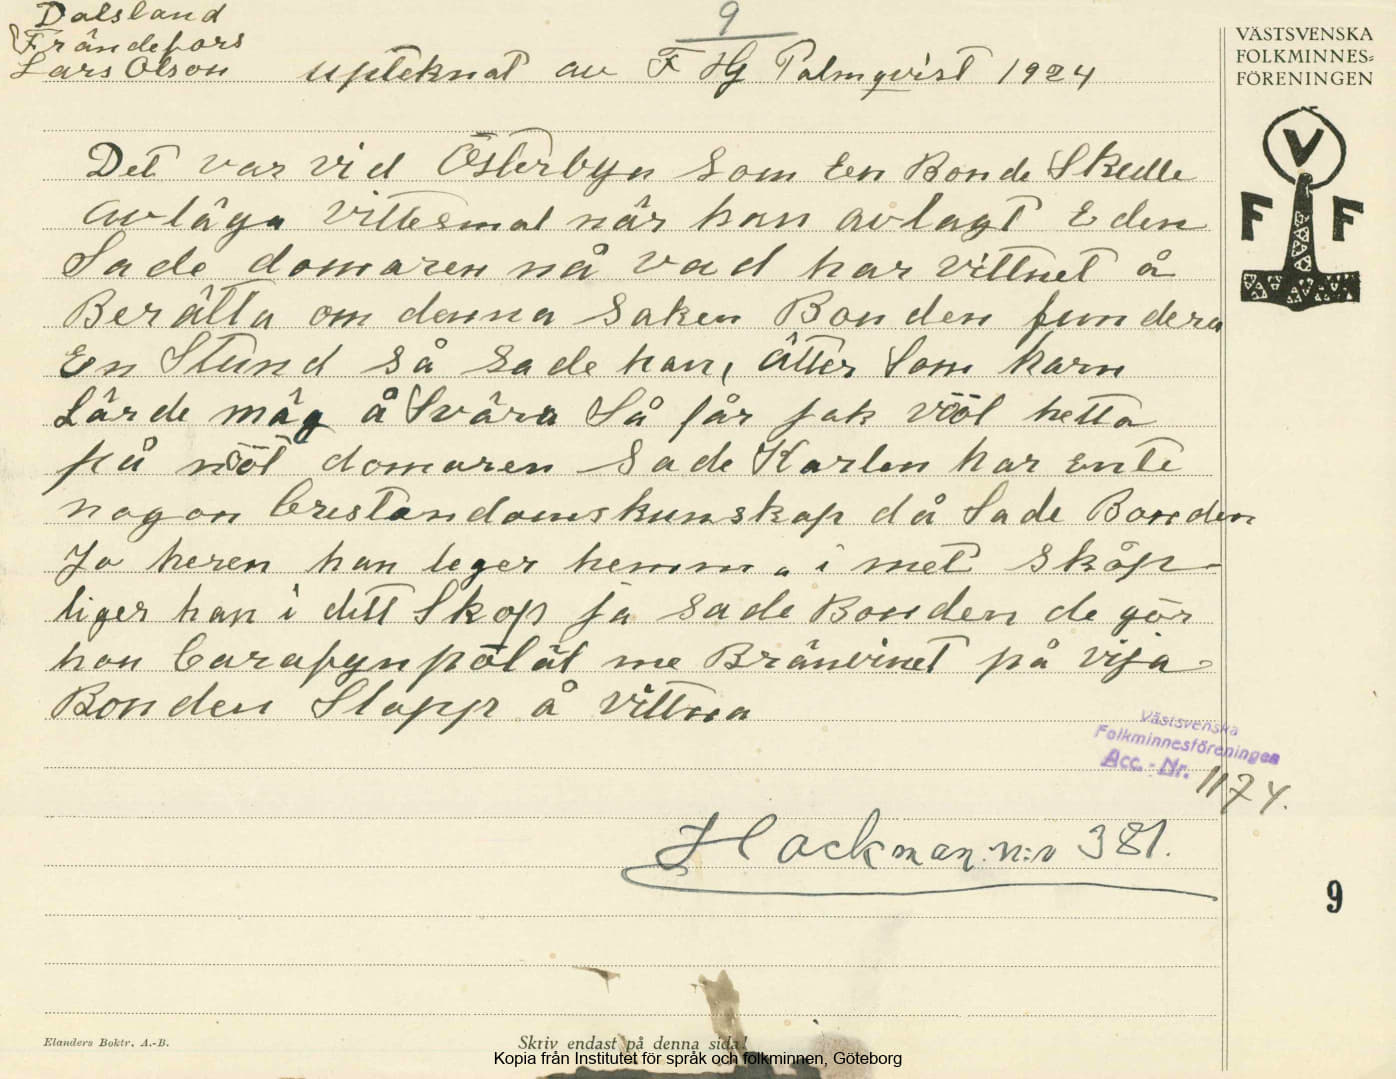 Dalsland
9
Frändefors
Lars Olson upteknat av F Hg Palmqvist 1924
VÄSTSVENSKA
FOLKMINNES=
FÖRENINGEN
V
F F
Det var vid Österbyn som En Bonde Skulle
avläga vittesmal när han avlagt Eden
Sade domaren nå vad har vittnet å
Berätta om denna saken Bonden fundera
En Stund så sade han, ätter Som harn
Lärde mäg å Svära Så får jak vööl hetta
på nööt domaren Sade Karlen har ente
nogon Crestendomskunskap då Sade Bonden
Ja heren han leger hemma i met skåp
liger han i ditt Skop ja sade Bonden de gör
hon Carafynpölät me Bränvinet på vija
Bonden Slapp å vittna
Västsvenska
Folkminnesföreningen
Acc. - Nr. 1174.
Hackman. n:r 381.
9
Elanders Boktr. A.-B.
Skriv endast på denna sida!
Kopia från Institutet för språk och folkminnen, Göteborg